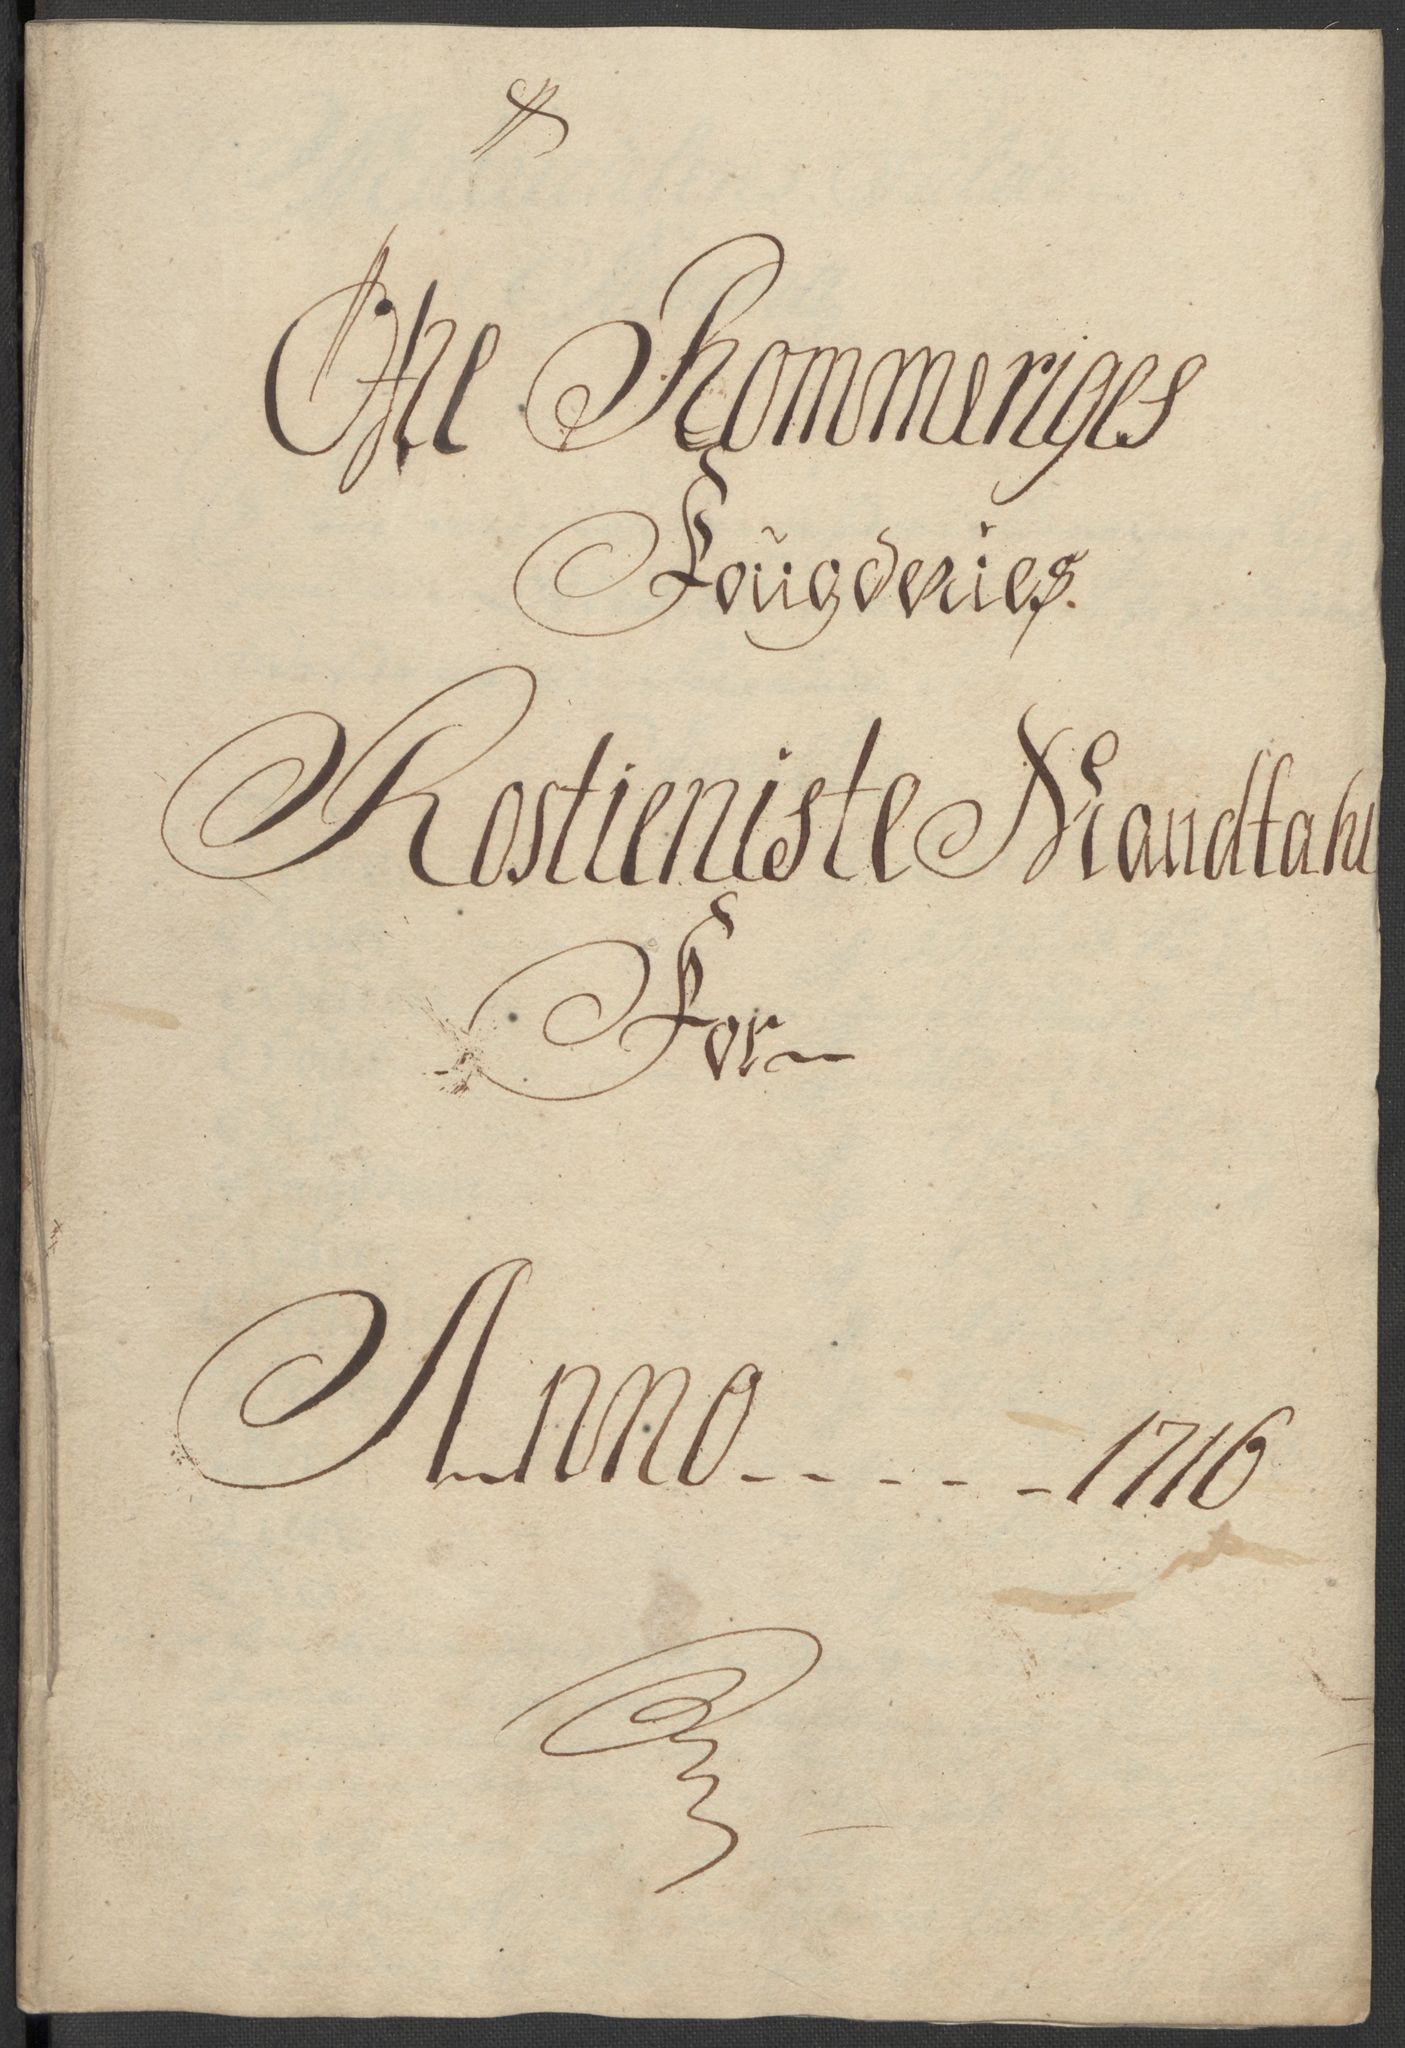 Øfre Rommeriges
Fougderies.
Rostieniste Mandtahl
For
Anno - - - - - 1716